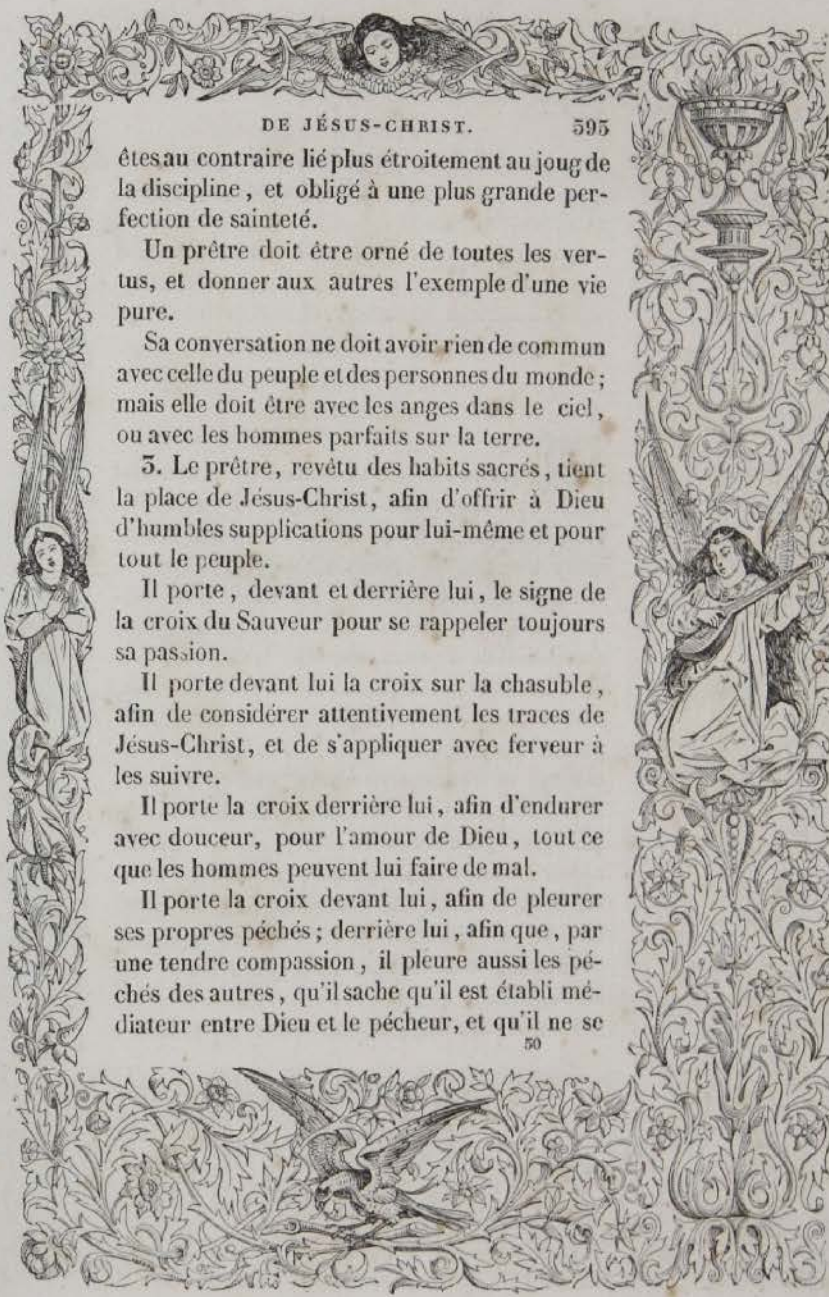 DE JÉSUS-CHRIST. 393
êtes au contraire lié plus étroitement au joug de
la discipline, et obligé à une plus grande per-
fection de sainteté.
Un prêtre doit être orné de toutes les ver-
tus, et donner aux autres l'exemple d'une vie
pure.
Sa conversation ne doit avoir rien de commun
avec celle du peuple et des personnes du monde;
mais elle doit être avec les anges dans le ciel,
ou avec les hommes parfaits sur la terre.
3. Le prêtre, revêtu des habits sacrés, tient
la place de Jésus-Christ, afin d'offrir à Dieu
d'humbles supplications pour lui-même et pour
tout le peuple.
Il porte, devant et derrière lui, le signe de
la croix du Sauveur pour se rappeler toujours
sa passion.
Il porte devant lui la croix sur la chasuble,
afin de considérer attentivement les traces de
Jésus-Christ, et de s'appliquer avec ferveur à
les suivre.
Il porte la croix derrière lui, afin d'endurer
avec douceur, pour l'amour de Dieu, tout ce
que les hommes peuvent lui faire de mal.
Il porte la croix devant lui, afin de pleurer
ses propres péchés; derrière lui, afin que, par
une tendre compassion, il pleure aussi les pé-
chés des autres, qu'il sache qu'il est établi mé-
diateur entre Dieu et le pécheur, et qu'il ne se
50